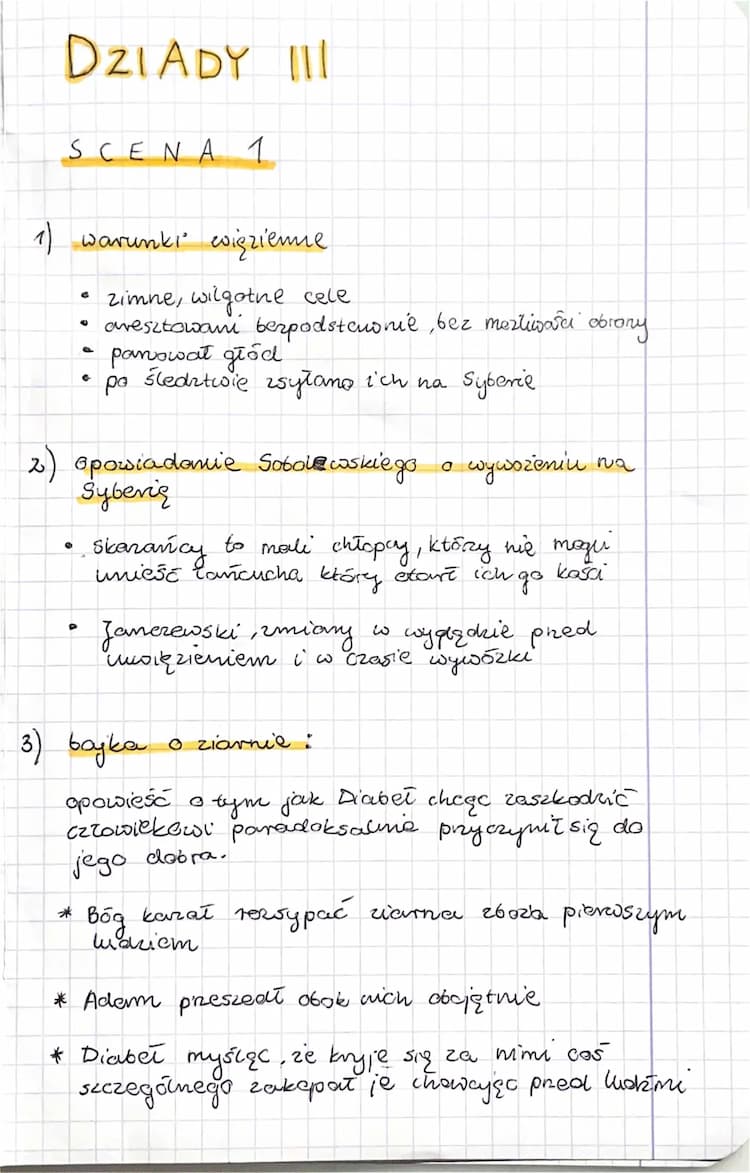 DZIADY III
SCENA 1
1) warunki więzienne
• zimne, wilgotne cele
• aresztowani bezpodstawnie, bez możliwości obrony
• panował głód
• po śledztwie zsyłano ich na Syberię
2) opowiadanie Sobolewskiego o wywożeniu na
Syberię
• Skazańcy to mali chłopcy, którzy nie mogli
unieść łańcucha który otarł ich go kości
• Janczewski, zmiany w wyglądzie przed
uwięzieniem i w czasie wywózki
3) bajka o ziarnie:
opowieść o tym jak Diabeł chcąc zaszkodzić
człowiekowi paradoksalnie przyczynił się do
jego dobra.
* Bóg kazał rozsypać ziarna zboża pierwszym
ludziom
* Adam przeszedł obok nich obojętnie
* Diabeł myśląc, że kryje się za nimi coś
szczególnego zakopał je chowając przed ludźmi